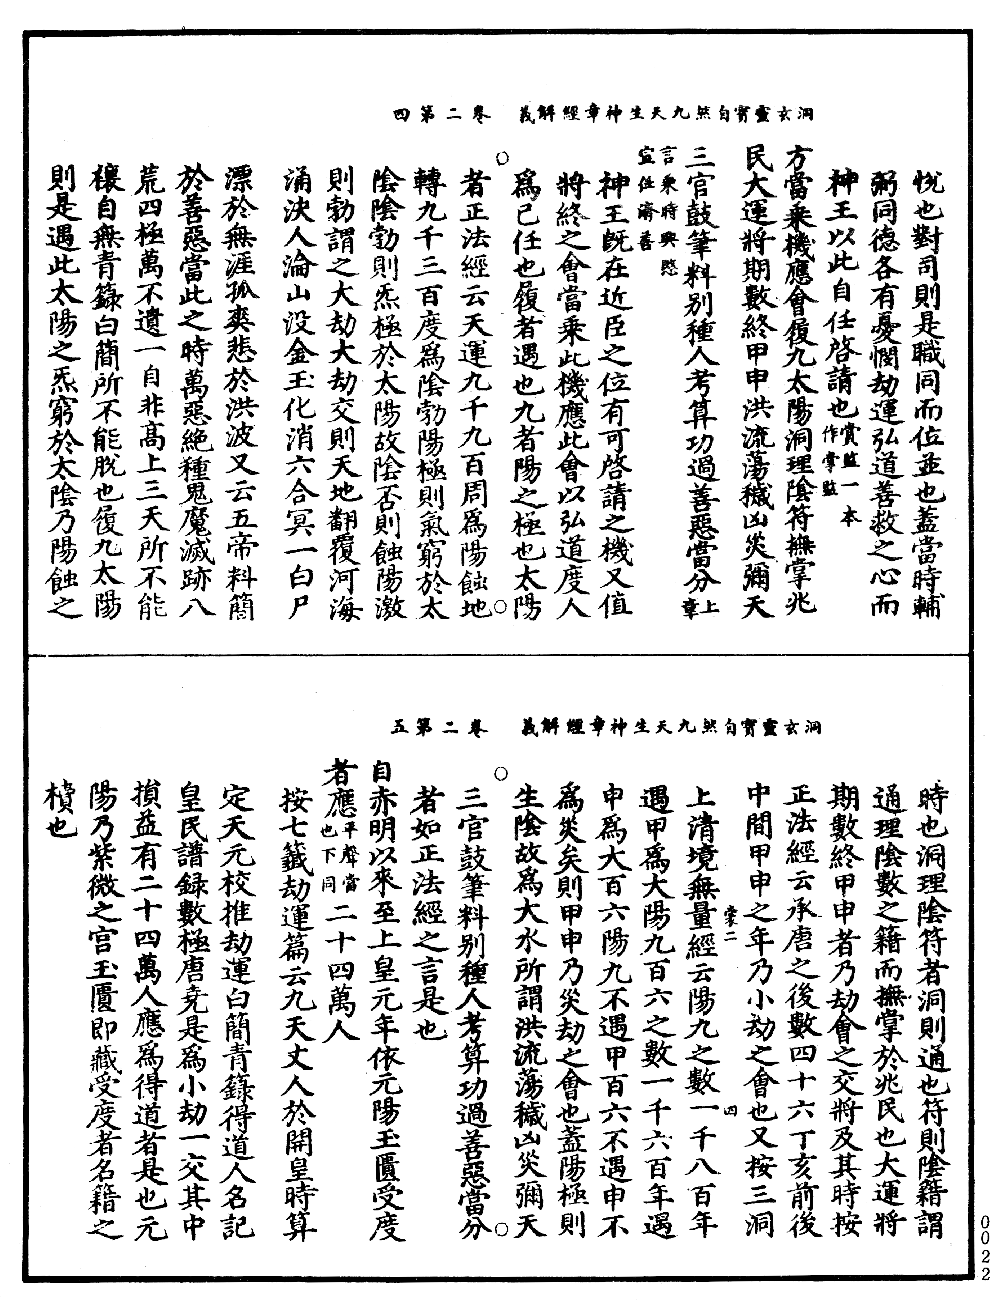 洞玄靈寳自然九天生神章經解義　卷二第四
悅也對司則是職同而位並也蓋當時輔
弼同德各有憂憫劫運弘道善救之心而
神王以此自任啓請也賞監一本作掌監
方當乘機應會履九太陽洞理陰符撫掌兆
民大運將期數終甲申洪流蕩穢凶災彌天
三官鼓筆料别種人考算功過善惡當分上章
言乘時興愍宣任濟善
神王旣在近臣之位有可啓請之機又值
將終之會當乘此機應此會以弘道度人
爲已任也履者遇也九者陽之極也太陽
者正法經云天運九千九百周爲陽蝕地
轉九千三百度爲陰勃陽極則氣窮於太
陰陰勃則炁極於太陽故陰否則蝕陽激
則勃謂之大劫大劫交則天地翻覆河海
涌決人淪山没金玉化消六合冥一白尸
漂於無涯孤爽悲於洪波又云五帝料簡
於善惡當此之時萬惡絶種鬼魔滅跡八
荒四極萬不遺一自非高上三天所不能
禳自無青籙白簡所不能脫也履九太陽
則是遇此太陽之炁窮於太陰乃陽蝕之
洞玄靈寳自然九天生神章經解義　卷二第五
時也洞理陰符者洞則通也符則陰籍謂
通理陰數之籍而撫掌於兆民也大運將
期數終甲申者乃劫會之交將及其時按
正法經云承唐之後數四十六丁亥前後
中間甲申之年乃小劫之會也又按三洞
裳二　四
上清境無量經云陽九之數一千八百年
遇甲爲大陽九百六之數一千六百年遇
申爲大百六陽九不遇甲百六不遇申不
爲災矣則甲申乃災劫之會也蓋陽極則
生陰故爲大水所謂洪流蕩穢凶災彌天
者如正法經之言是也
三官鼓筆料别種人考算功過善惡當分
自赤明以來至上皇元年依元陽玉匱受度
者應平聲當也下同二十四萬人
按七籤劫運篇云九天丈人於開皇時算
定天元校推劫運白簡青籙得道人名記
皇民譜録數極唐堯是爲小劫一交其中
損益有二十四萬人應爲得道者是也元
陽乃紫微之宮玉匱即藏受度者名籍之
櫝也
0022